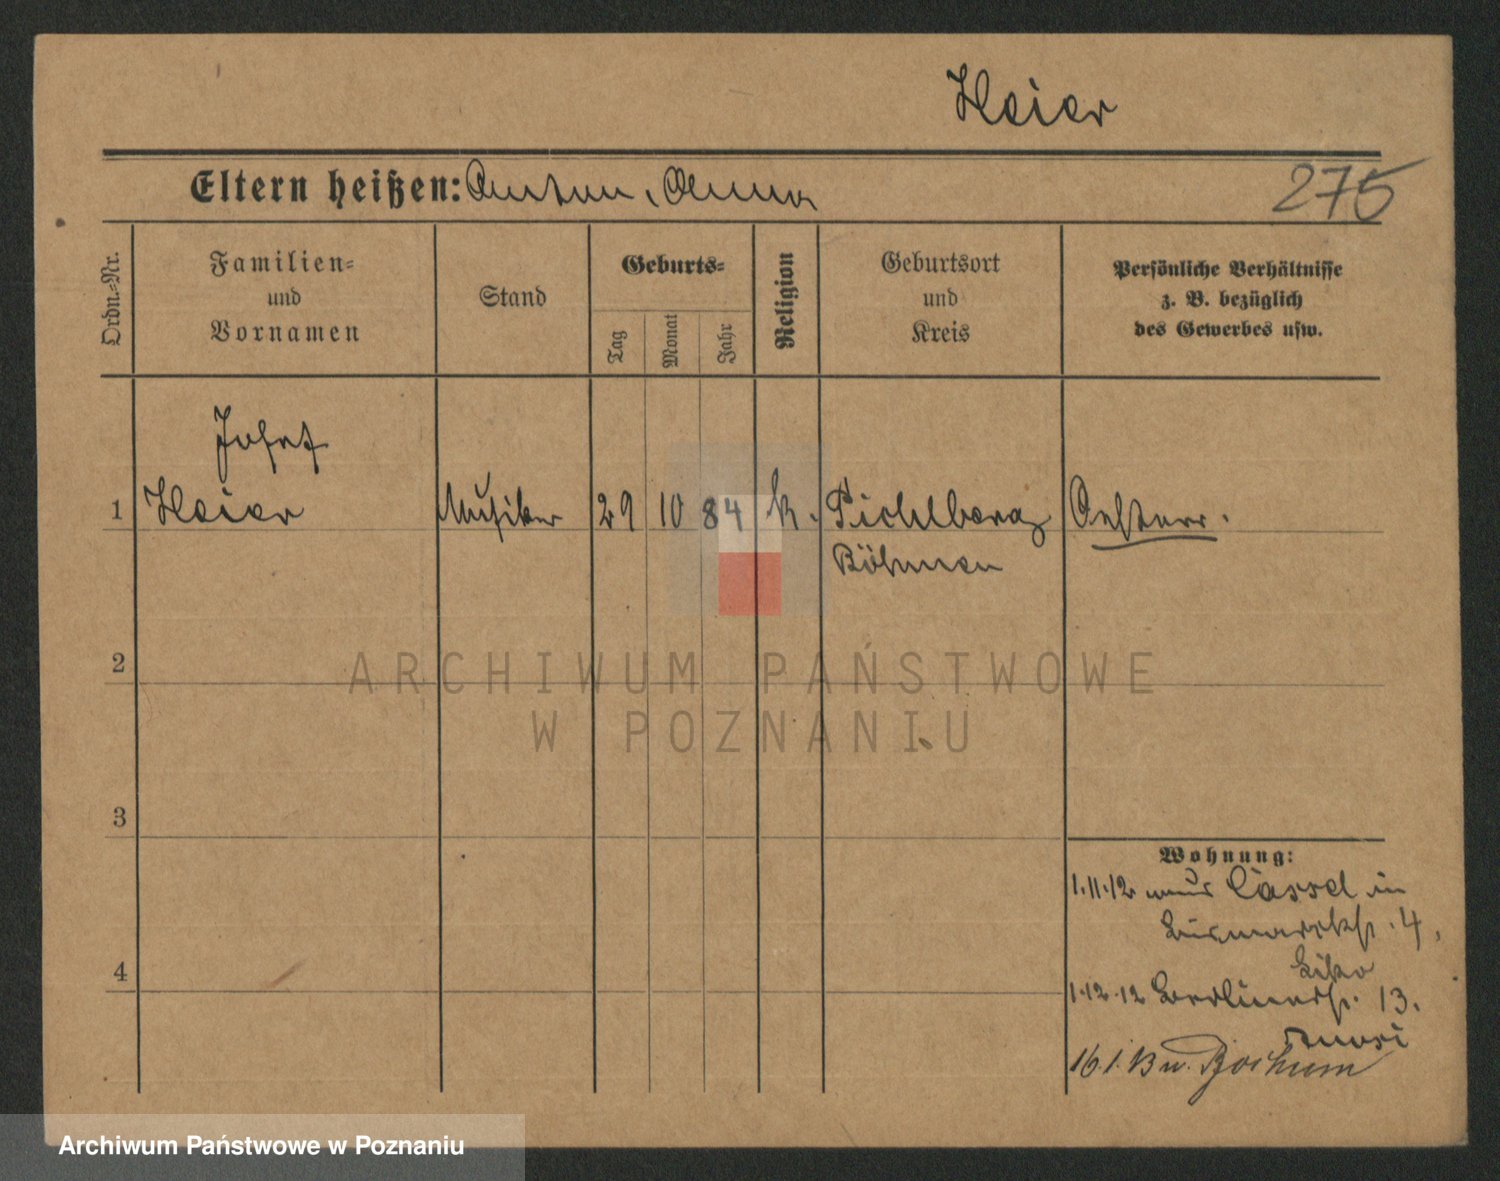 Heier
Eltern heißen: Anton, Anna
275
Ordn.=Nr.
Familien=
und
Vornamen
Stand
Geburts=
Tag
Monat
Jahr
Religion
Geburtsort
und
Kreis
Persönliche Verhältnisse
z. B. bezüglich
des Gewerbes usw.
Josef
1 Heier Musiker 29 10 84 k. Pichlberg Oesterr.
Böhmen
2
ARCHIWUM PAŃSTWOWE
W POZNANIU
3
Wohnung:
1.11.12 Cassel in
Bismarckst. 4,
4
1.12.12 Berlinerst. 13.
16.1.13 n. Bochum
Archiwum Państwowe w Poznaniu